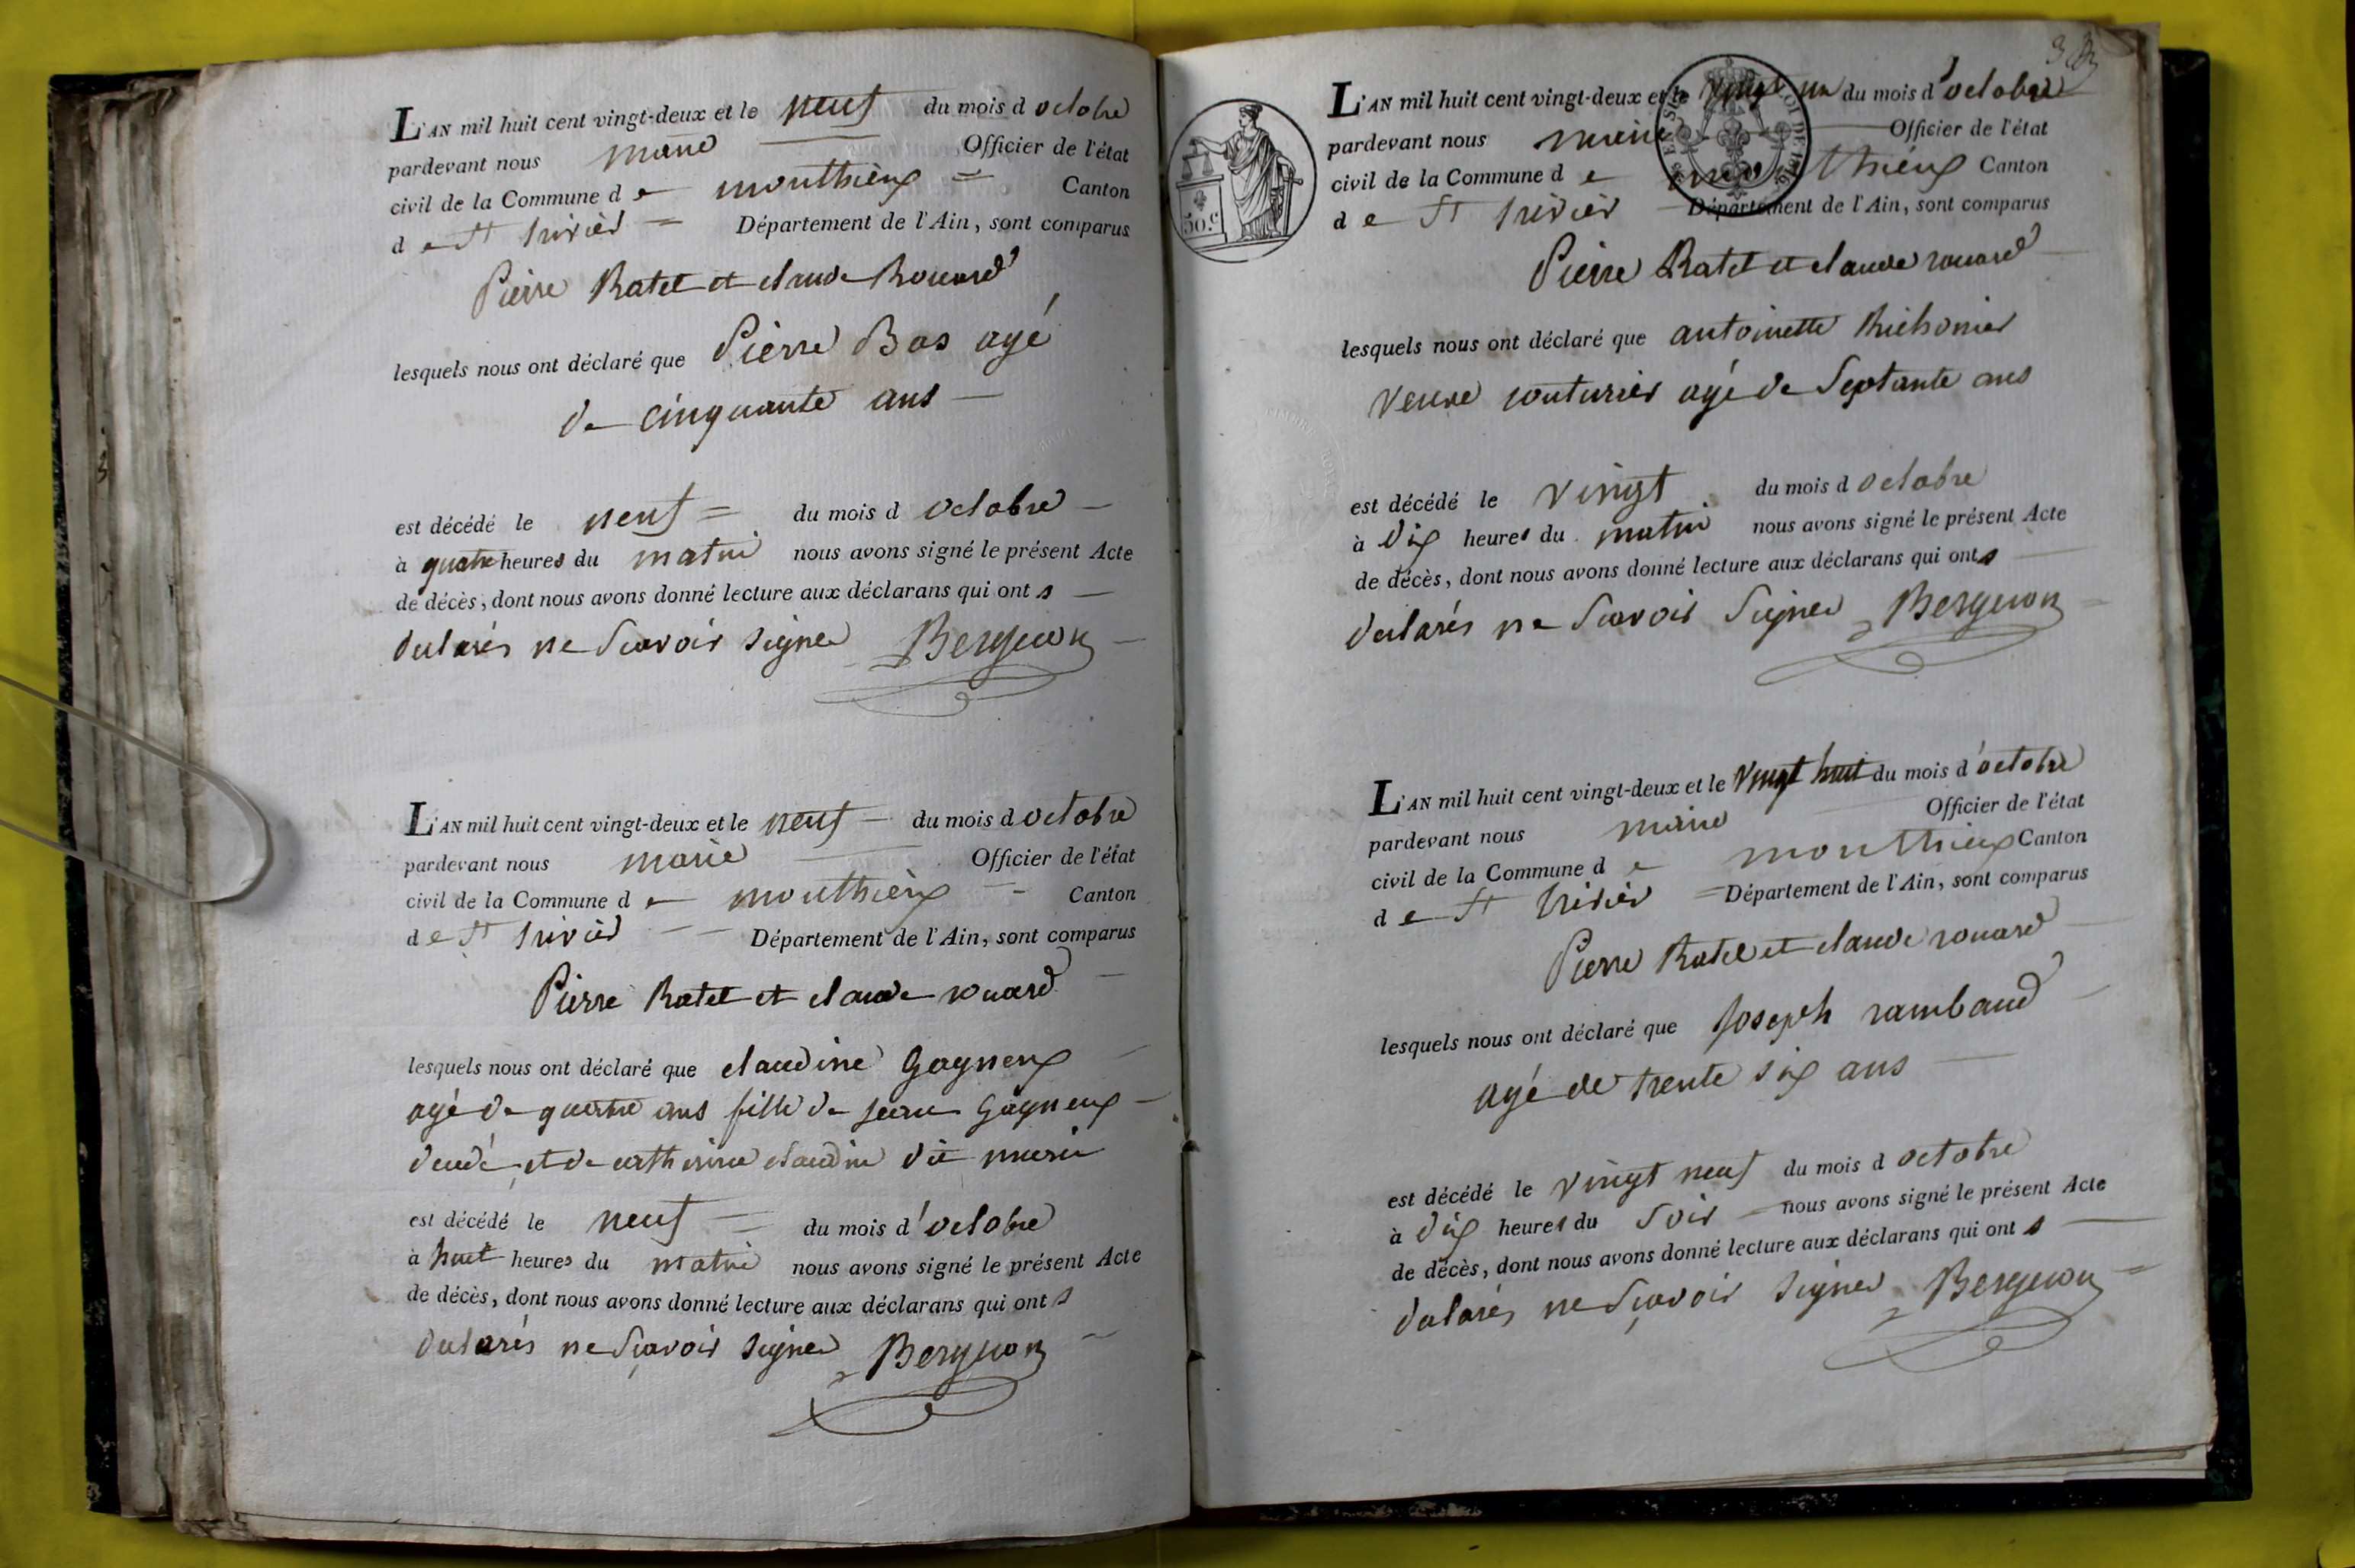 L'AN mil huit cent vingt-deux et le neuf du mois d octobre
pardevant nous maire Officier de l'état
civil de la Commune d e monthieux Canton
d e St trivier Département de l'Ain, sont comparus
Pierre Ratel et claude Rouard
lesquels nous ont déclaré que Pierre Bas agé
de cinquante ans
est décédé le neuf du mois d octobre
à quatre heures du matin nous avons signé le présent Acte
de décès, dont nous avons donné lecture aux déclarans qui ont s
déclarés ne scavoir signer Berguon
L'AN mil huit cent vingt-deux et le neuf du mois d octobre
pardevant nous maire Officier de l'état
civil de la Commune d e monthieux Canton
d e St trivier Département de l'Ain, sont comparus
Pierre Ratel et claude rouard
lesquels nous ont déclaré que claudine Gagneux
agé de quatre ans fille de jean Gagneux
et de claudine
est décédé le neuf du mois d'octobre
à huit heures du matin nous avons signé le présent Acte
de décès, dont nous avons donné lecture aux déclarans qui ont s
déclarés ne sçavoir signer Berguon
50.c
L'AN mil huit cent vingt-deux et le vingt un du mois d'octobre
pardevant nous maire Officier de l'état
civil de la Commune d e monthieux Canton
LOI DE 1816
d e St trivier Département de l'Ain, sont comparus
Pierre Ratel et claude rouard
lesquels nous ont déclaré que antoinette Richonier
veuve couturier agé de Septante ans
est décédé le vingt du mois d octobre
à dix heures du matin nous avons signé le présent Acte
de décès, dont nous avons donné lecture aux déclarans qui ont s
déclarés ne scavoir signer Berguon
L'AN mil huit cent vingt-deux et le vingt huit du mois d'octobre
pardevant nous maire Officier de l'état
civil de la Commune d e monthieux Canton
d e St trivier Département de l'Ain, sont comparus
Pierre Ratel et claude rouard
lesquels nous ont déclaré que joseph rambaud
agé de trente six ans
est décédé le vingt neuf du mois d octobre
à dix heures du soir nous avons signé le présent Acte
de décès, dont nous avons donné lecture aux déclarans qui ont s
déclarés ne sçavoir signer Berguon